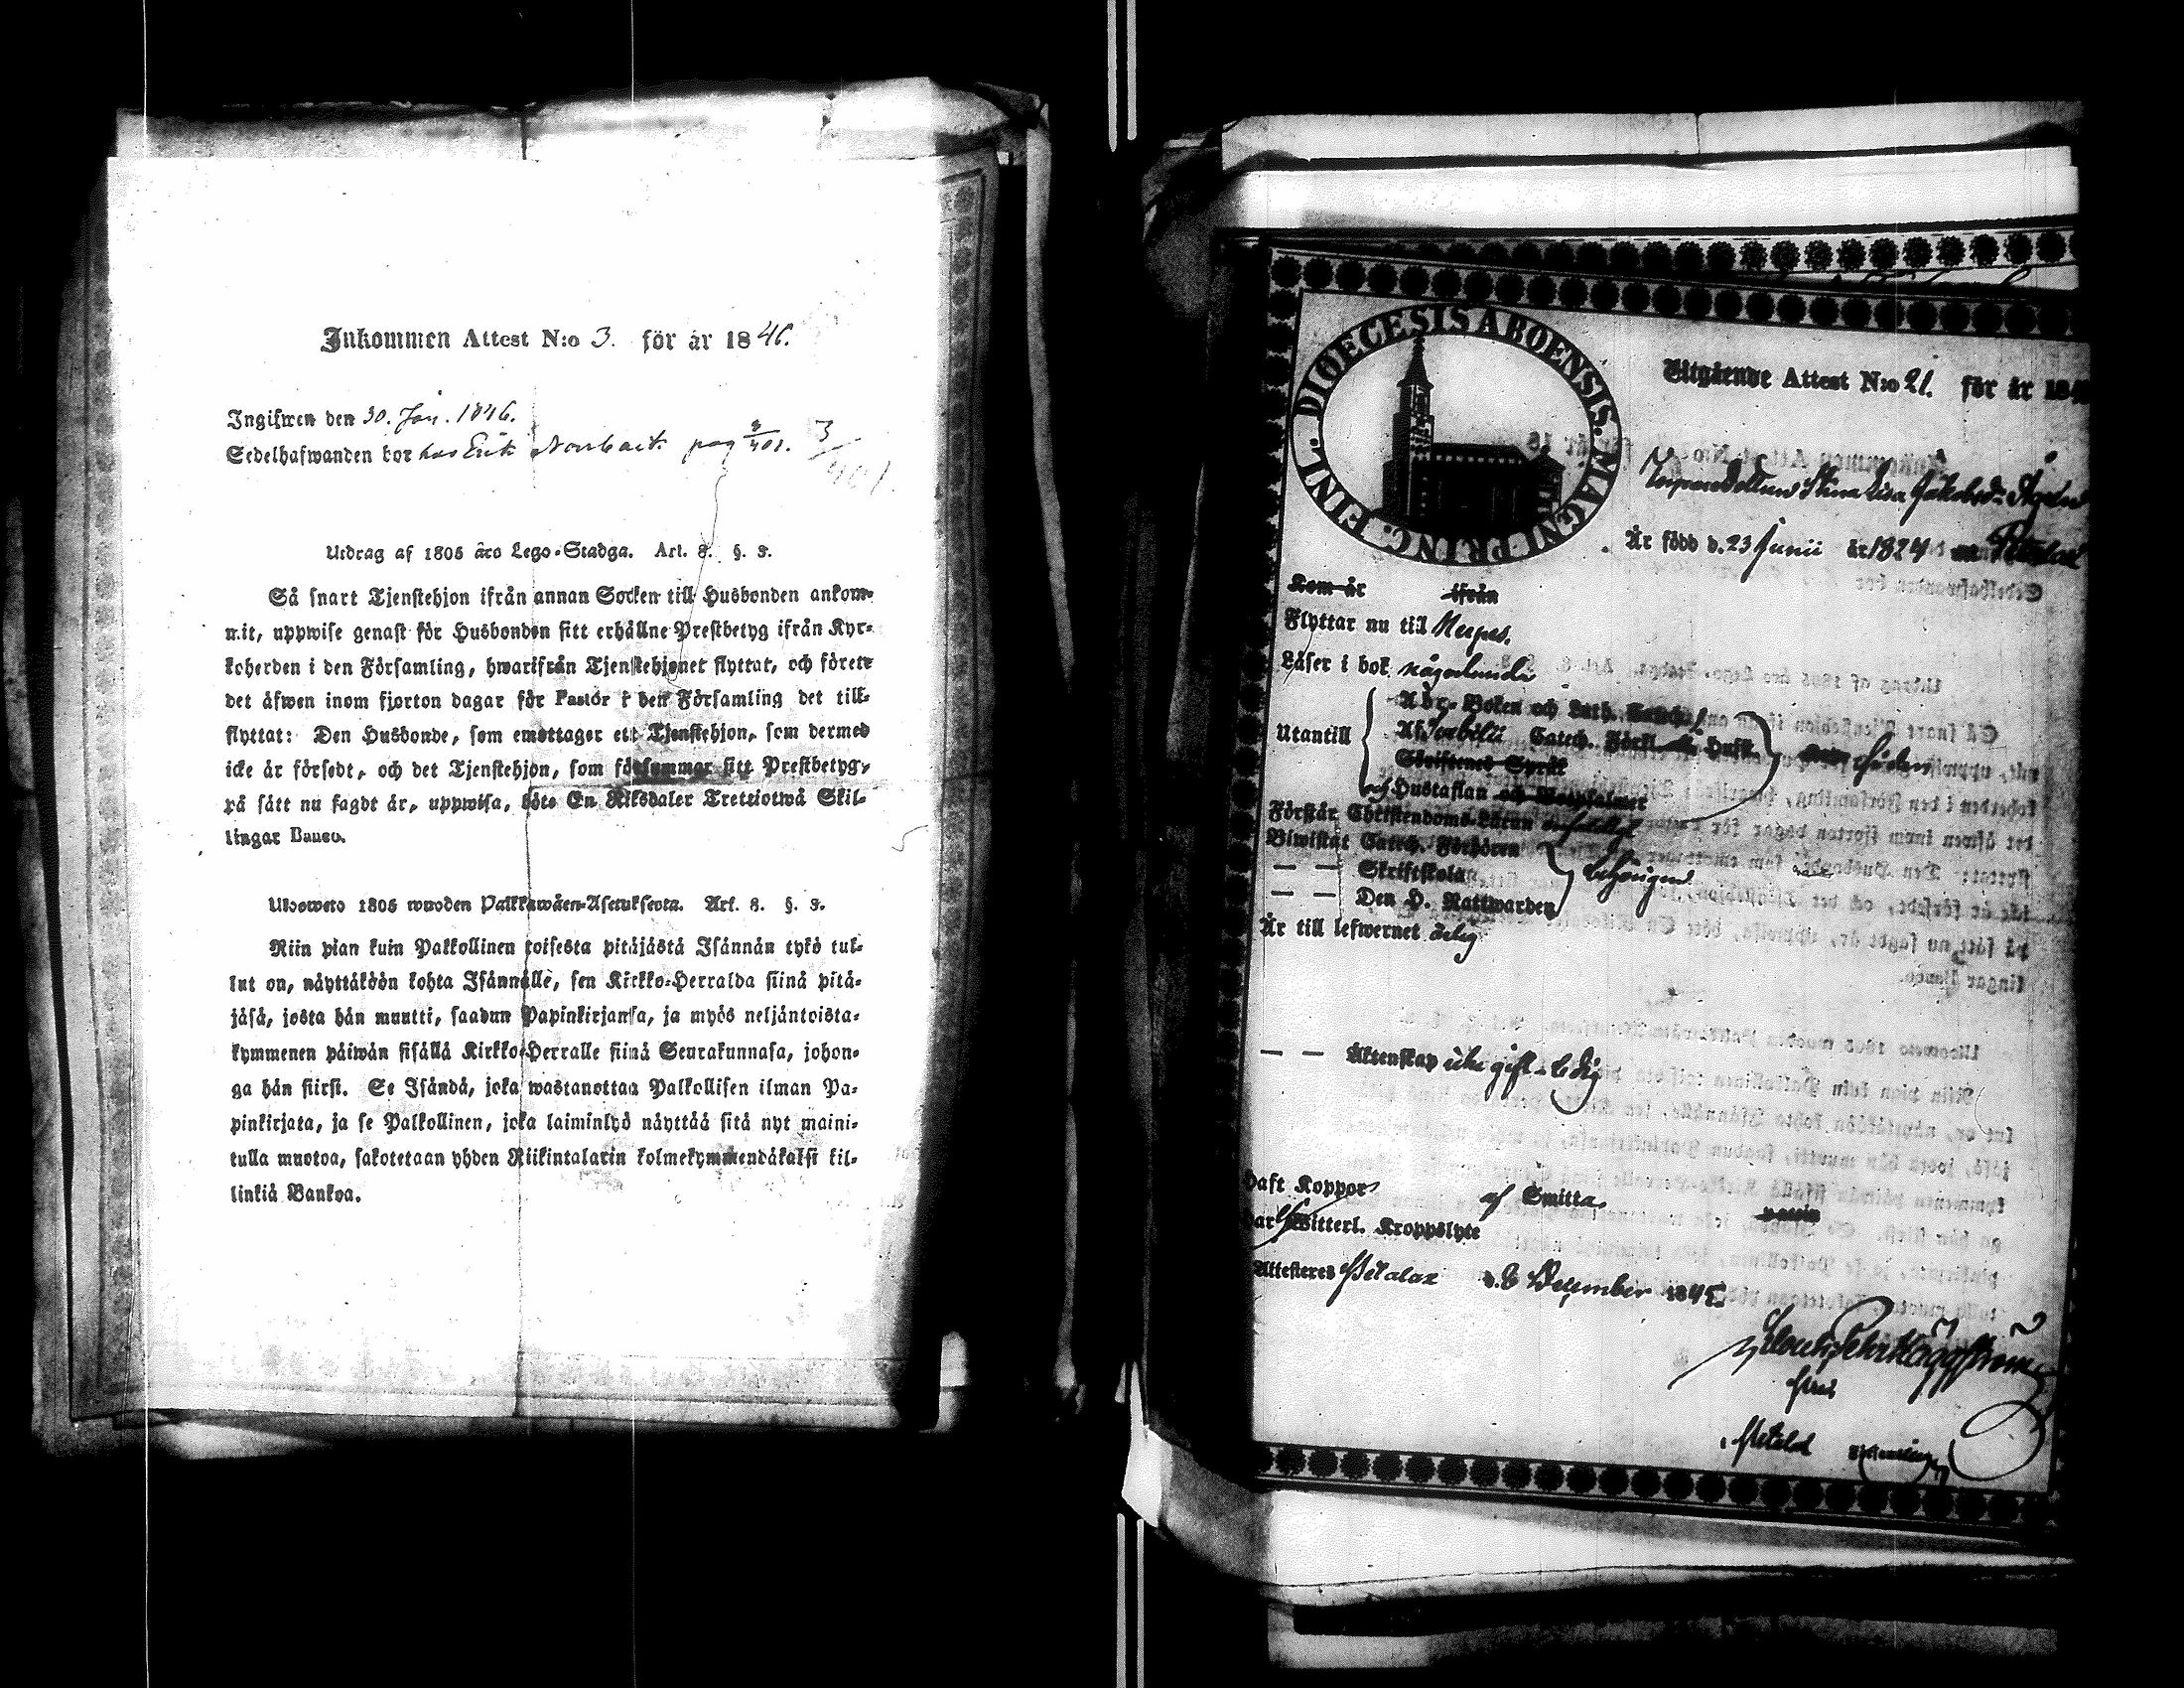 Inkommen Attest N:o 3. för år 1846.
Ingifwen den 30. Jan. 1846.
Sedelhafwanden bor hos Erik Norrback pag 3/401. 3/401
Utdrag af 1805 års Lego-Stadga. Art. 8. §. 3.
Så snart Tjenstehjon ifrån annan Socken till Husbonden ankom-
mit, uppwise genast för Husbonden sitt erhållne Prestbetyg ifrån Kyr-
koherden i den Församling, hwarifrån Tjenstehjonet flyttat, och förete
det äfwen inom fjorton dagar för Pastor i den Församling det till-
flyttat: Den Husbonde, som emottager ett Tjenstehjon, som dermed
icke är försedt, och det Tjenstehjon, som försummar sitt Prestbetyg,
på sätt nu sagdt är, uppwisa, böte En Riksdaler Trettiotwå Skil-
lingar Banco.
Uloosweto 1805 wuoden Palkkawäen-Asetuksesta. Art. 8. §. 3.
Niin pian kuin Palkollinen toisesta pitäjästä Isännän tykö tul-
lut on, näyttäköön kohta Isännälle, sen Kirkko-Herralda siinä pitä-
jäsä, josta hän muutti, saadun Papinkirjansa, ja myös neljäntoista-
kymmenen päiwän sisällä Kirkko-Herralle siinä Seurakunnasa, johon-
ga hän siirst. Se Isändä, joka wastanottaa Palkollisen ilman Pa-
pinkirjata, ja se Palkollinen, joka laiminlyö näyttää sitä nyt maini-
tulla muotoa, sakotetaan yhden Riikintalarin kolmekymmendäkaksi kil-
linkiä Bankoa.
DIOECESIS ABOENSIS. MAGNI PRINC. FINL.
Utgående Attest N:o 21. för år 184
Stina Lisa Jakobsdr
Är född d. 23 Junii år 1824
Kom år ifrån
Flyttar nu till Nerpes.
Läser i bok någorlunda
Utantill
Abc-Boken och Luth. Catech.
Af Swebilii Catech. Förkl. Hust.
Skriftenes Språk
och Hustaflan och Botpsalmer
Förstår Christendoms-Läran
Biwistat Catech. Förhören
— — Skriftskola behörigen
— — Den H. Nattwarden
Är till lefwernet ärlig
— — Äktenskap icke gift - ledig
Haft Koppor af Smitta
Har Witterl. Kroppslyte
Attesteras Petalax d. 8 December 1845.
Häggström